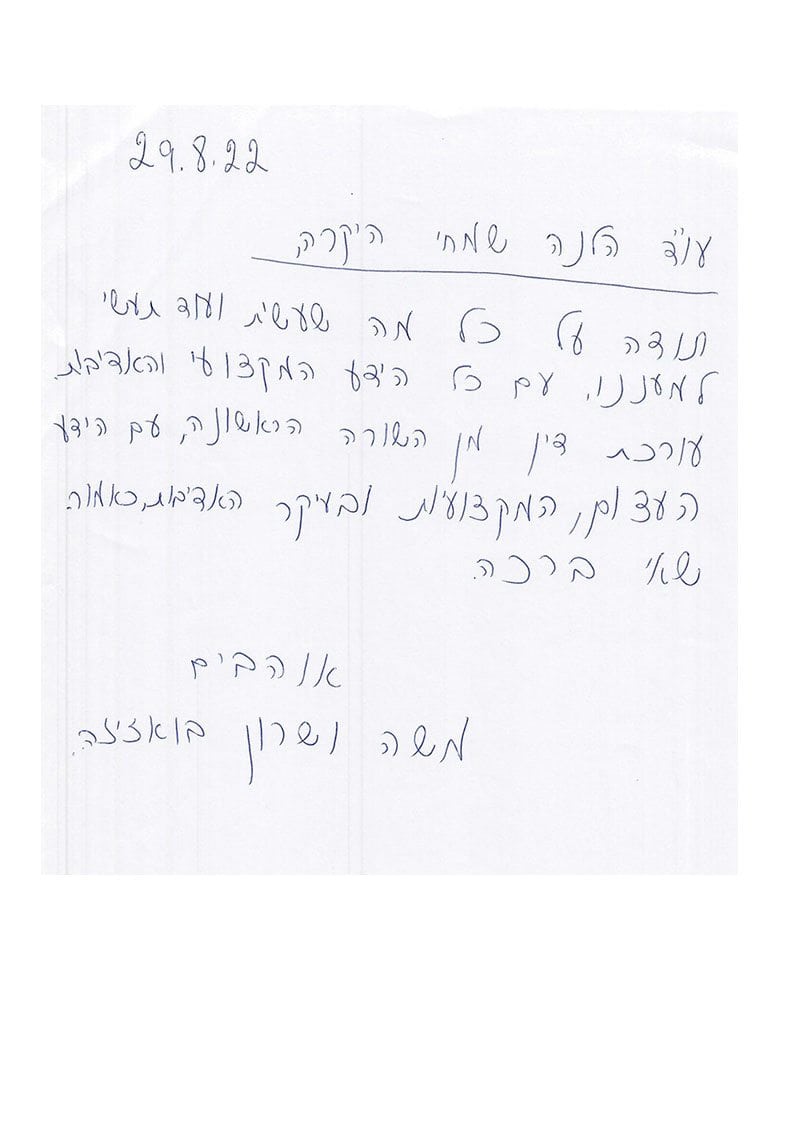 29.8.22
עו"ד הלנה שמחי היקרה,
תודה על כל מה שעשית ועוד תעשי
למעננו, עם כל הידע המקצועי והאדיבות.
עורכת דין מן השורה הראשונה, עם הידע
העצום, המקצועיות ובעיקר האדיבות, כאמור.
שאי ברכה.
אוהבים
משה ושרון בואזיזה.